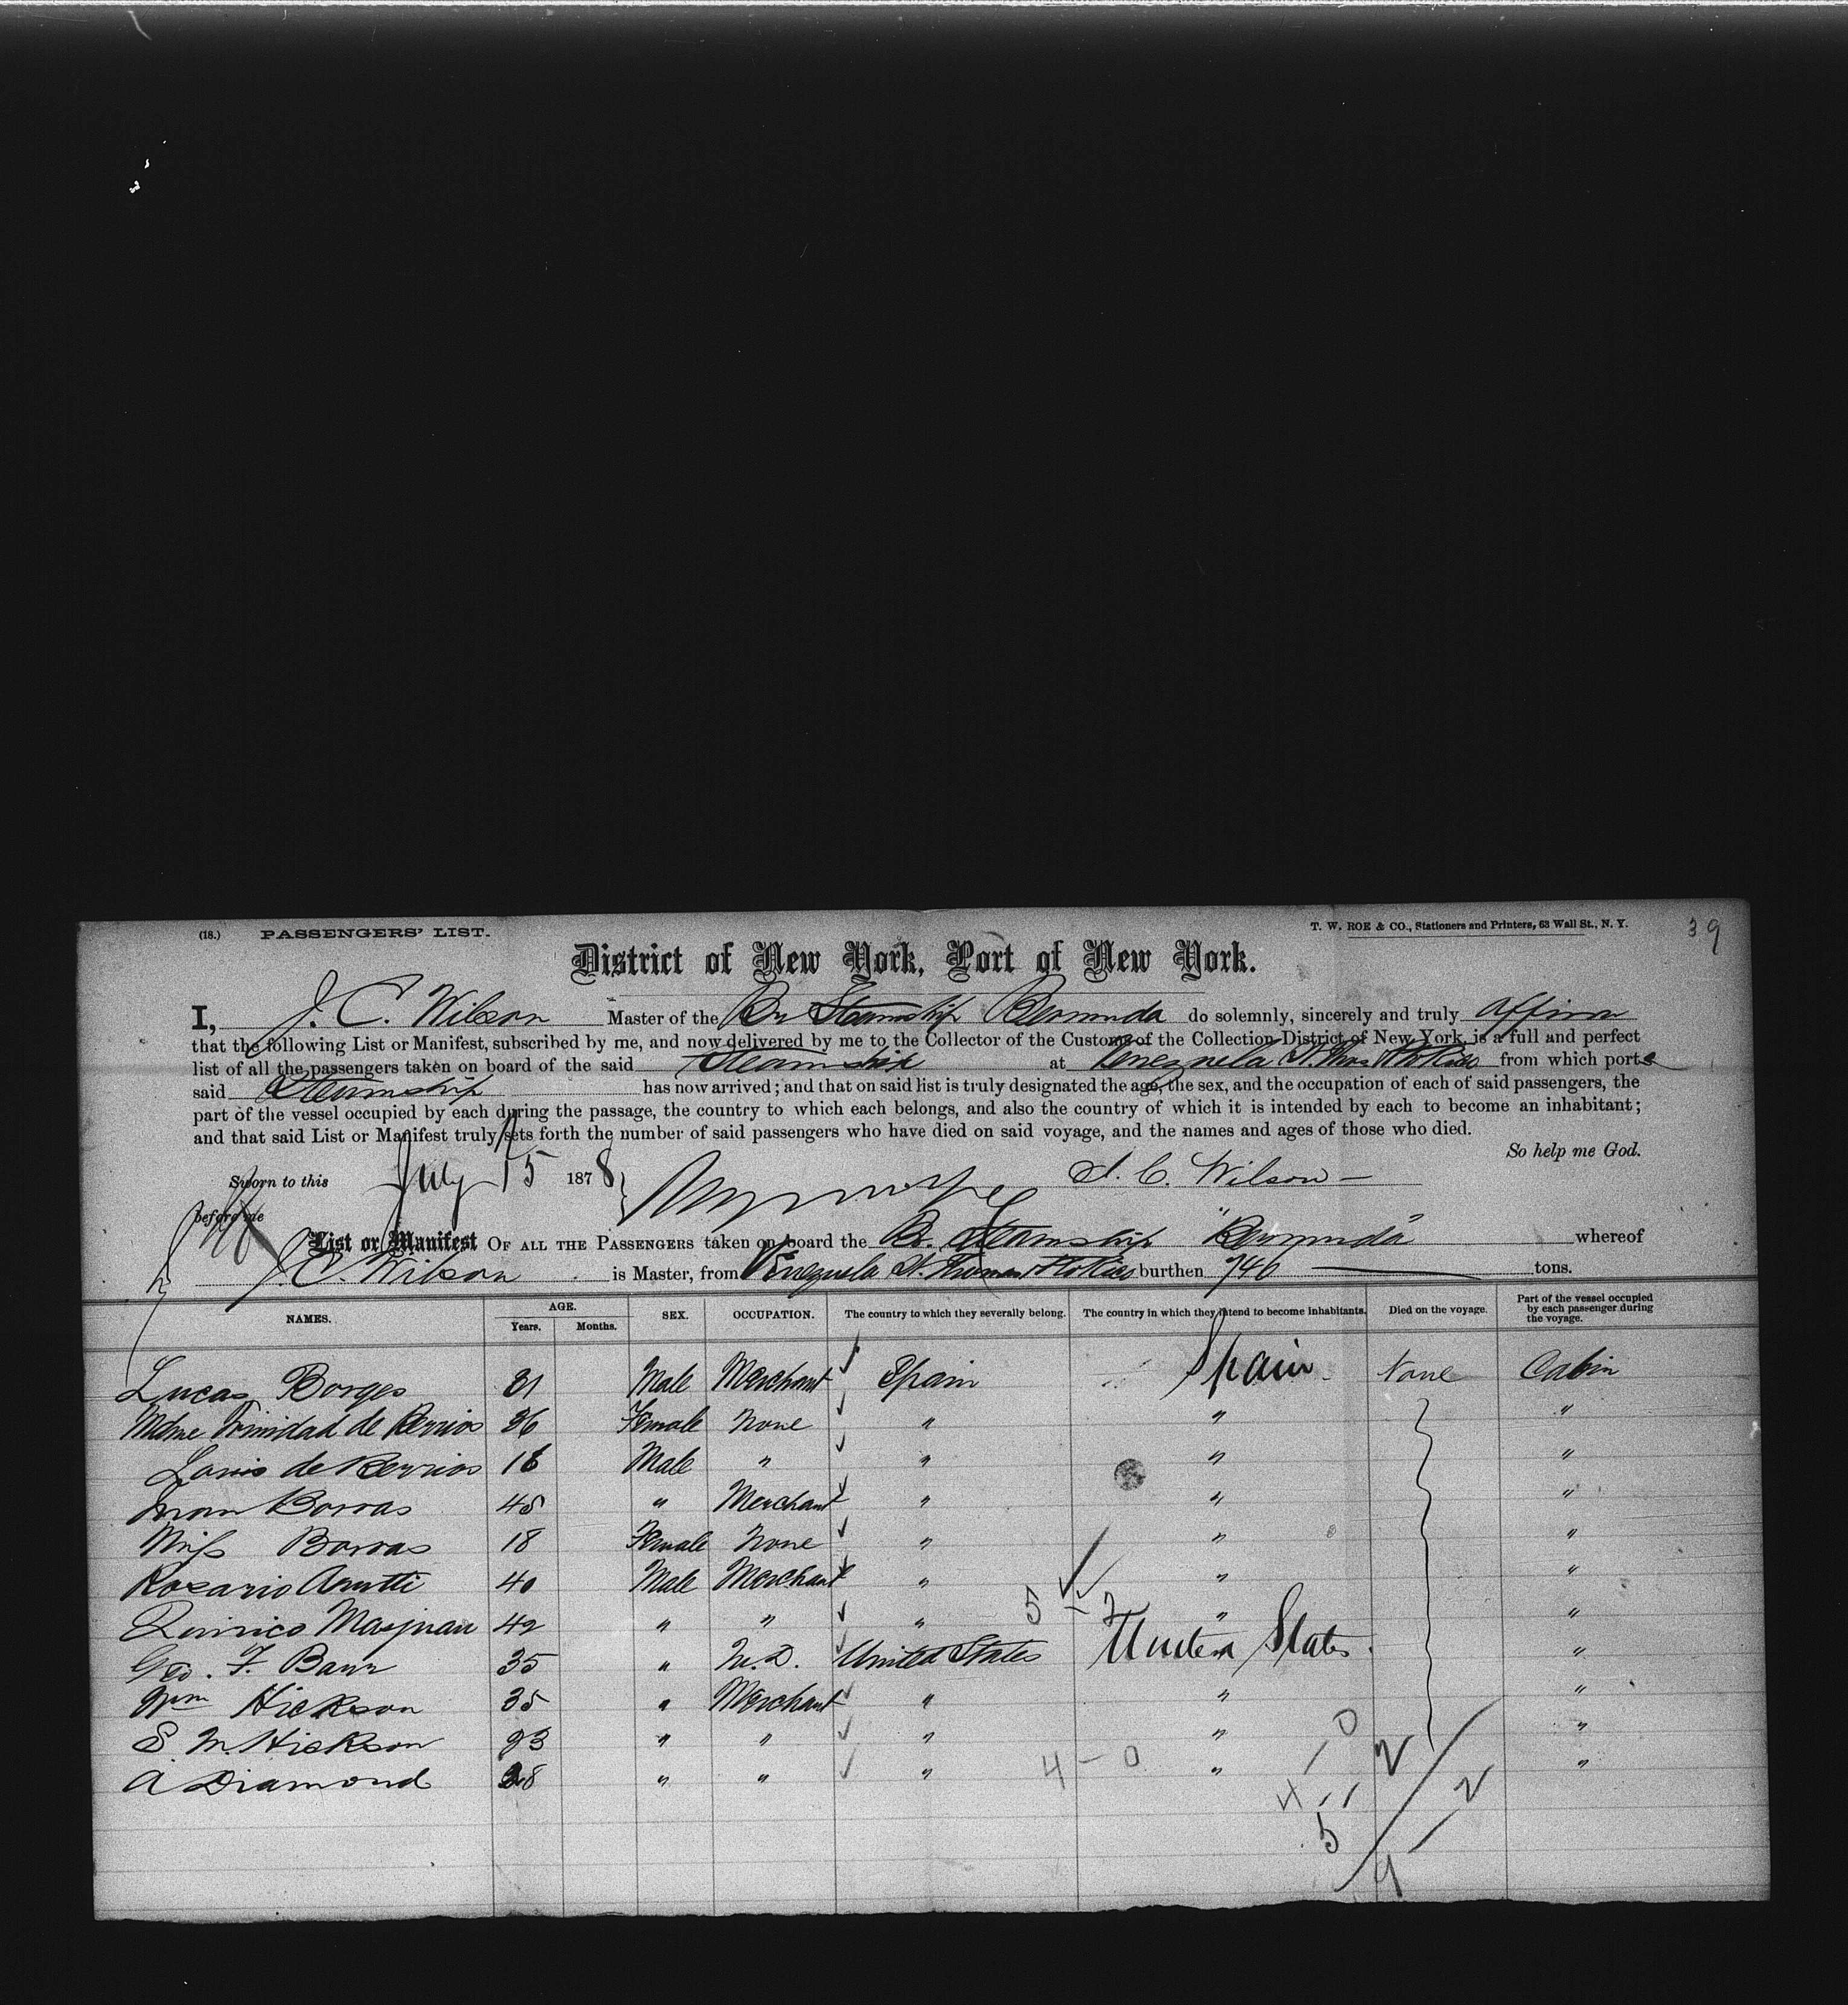 (18.) PASSENGERS' LIST. T. W. ROE & CO., Stationers and Printers, 63 Wall St., N. Y. 39
District of New York, Port of New York.
I, J. C. Wilson Master of the Br Steamship Bermuda do solemnly, sincerely and truly affirm
that the following List or Manifest, subscribed by me, and now delivered by me to the Collector of the Customs of the Collection District of New York, is a full and perfect
list of all the passengers taken on board of the said Steamship at Venezuela St. Thos from which ports
said Steamship has now arrived; and that on said list is truly designated the age, the sex, and the occupation of each of said passengers, the
part of the vessel occupied by each during the passage, the country to which each belongs, and also the country of which it is intended by each to become an inhabitant;
and that said List or Manifest truly sets forth the number of said passengers who have died on said voyage, and the names and ages of those who died.
So help me God.
Sworn to this July 15 1878 J. C. Wilson
before me
List or Manifest OF ALL THE PASSENGERS taken on board the Br. Steamship "Bermuda" whereof
J. C. Wilson is Master, from Venezuela St. Thomas burthen 746 tons.
NAMES. AGE. Years. Months. SEX. OCCUPATION. The country to which they severally belong. The country in which they intend to become inhabitants. Died on the voyage. Part of the vessel occupied by each passenger during the voyage.
Lucas Borges 31 Male Merchant Spain Spain None Cabin
Mdme Trinidad de Berrios 36 Female None " " "
Louis de Berrios 16 Male " " " "
Borras 45 " Merchant " " "
Miss Borras 18 Female None " " "
Rosario 40 Male Merchant " " "
Quirico Masjuan 42 " " " " "
Geo. F. Barr 35 " M.D. United States United States "
Wm Hickson 35 " Merchant " " "
S. M. Hickson 23 " " " " "
A Diamond 28 " " " 4 - 0 " "